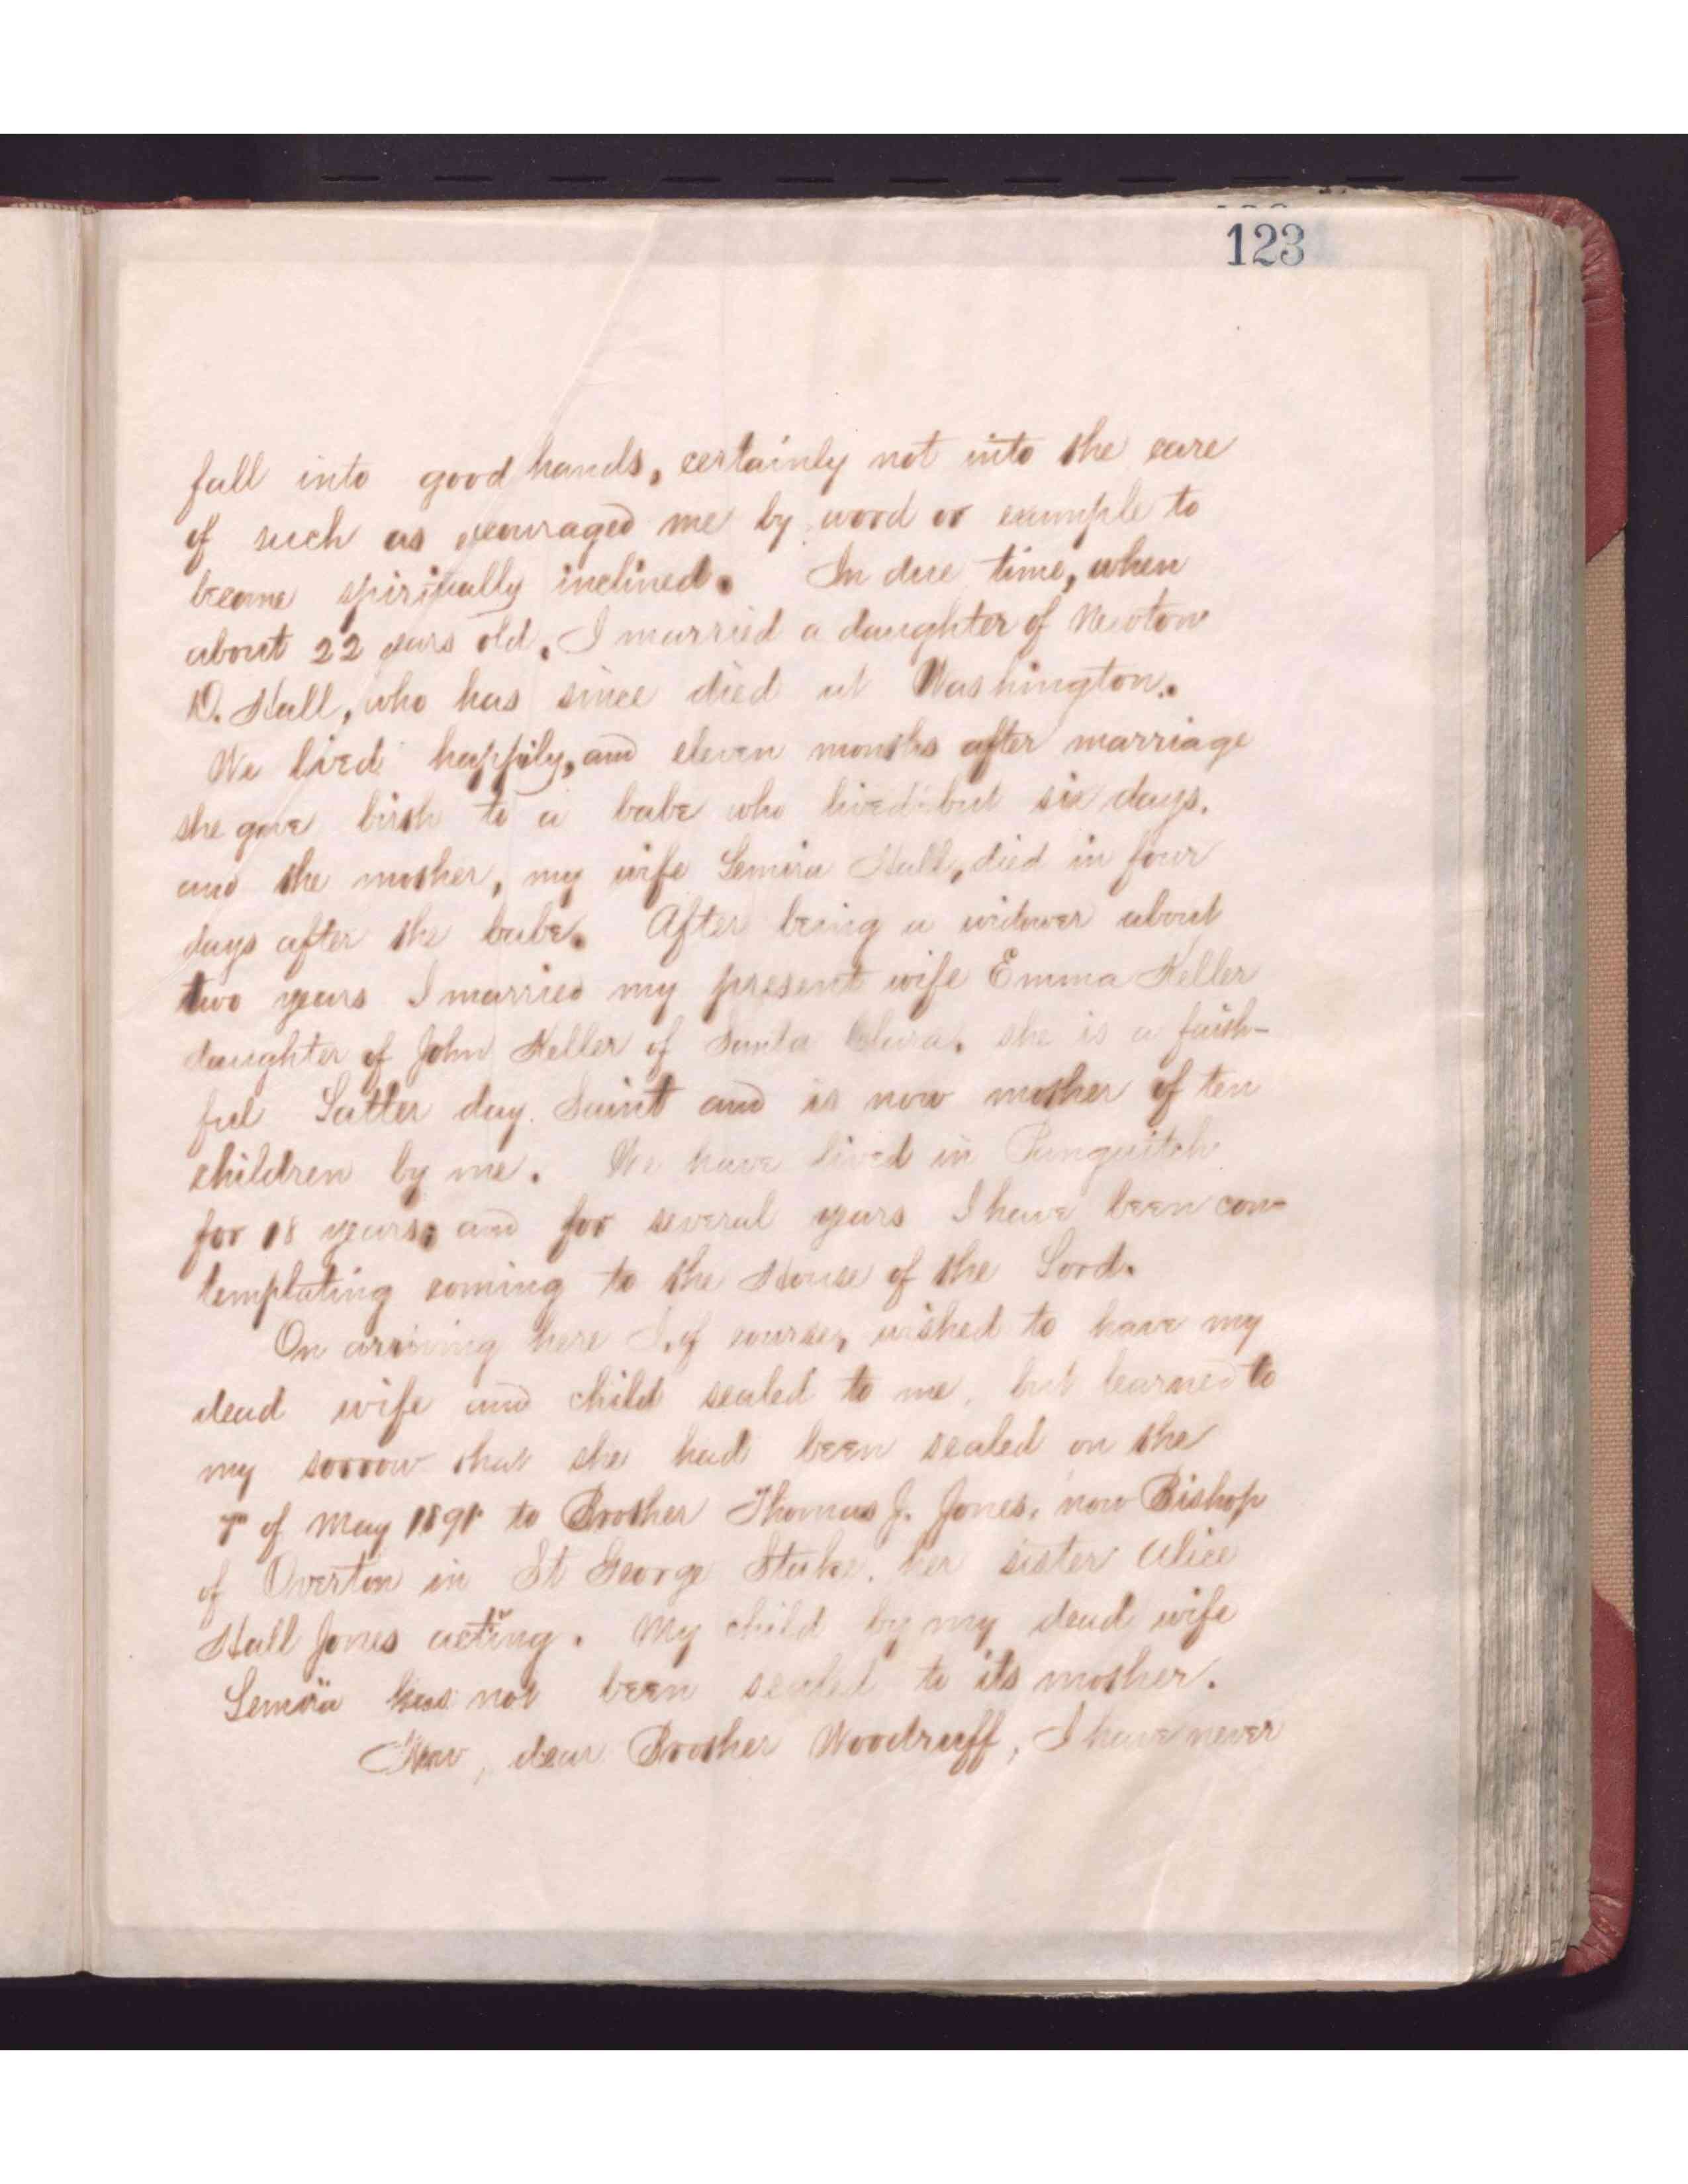 123
fall into good hands, certainly not into the care
of such as encouraged me by word or example to
become spiritually inclined. In due time, when
about 22 years old, I married a daughter of Newton
D. Hall, who has since died at Washington.
We lived happily, and eleven months after marriage
she gave birth to a babe who lived but six days.
and the mother, my wife Lemira Hall, died in four
days after the babe. After being a widower about
two years I married my present wife Emma Keller
daughter of John Keller of Santa Clara. she is a faith-
ful Latter day Saint and is now mother of ten
children by me. We have lived in Panguitch
for 18 years, and for several years I have been con-
templating coming to the House of the Lord.
On arriving here I, of course, wished to have my
dead wife and child sealed to me, but learned to
my sorrow that she had been sealed on the
of May 1891 to Brother Thomas J. Jones, now Bishop
of Overton in St George Stake. her sister Alice
Hall Jones acting. My child by my dead wife
Lemira has not been sealed to its mother.
Now, dear Brother Woodruff, I have never